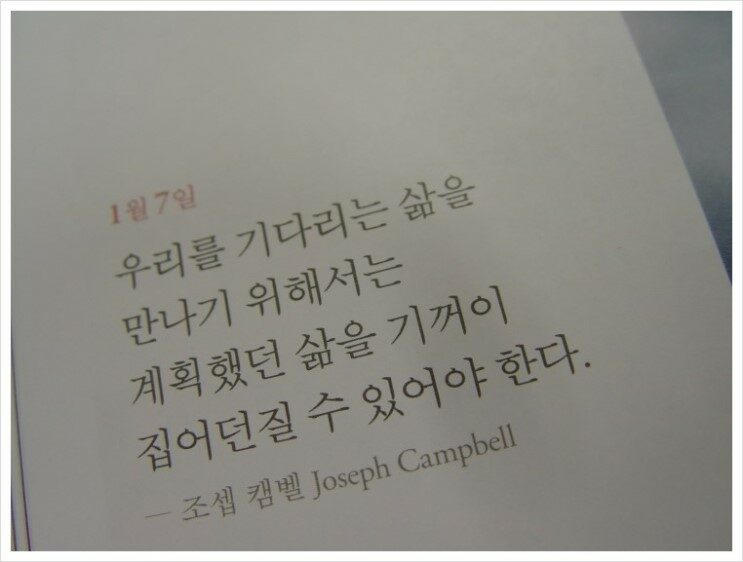 1월 7일
우리를 기다리는 삶을
만나기 위해서는
계획했던 삶을 기꺼이
집어던질 수 있어야 한다.
— 조셉 캠벨 Joseph Campbell